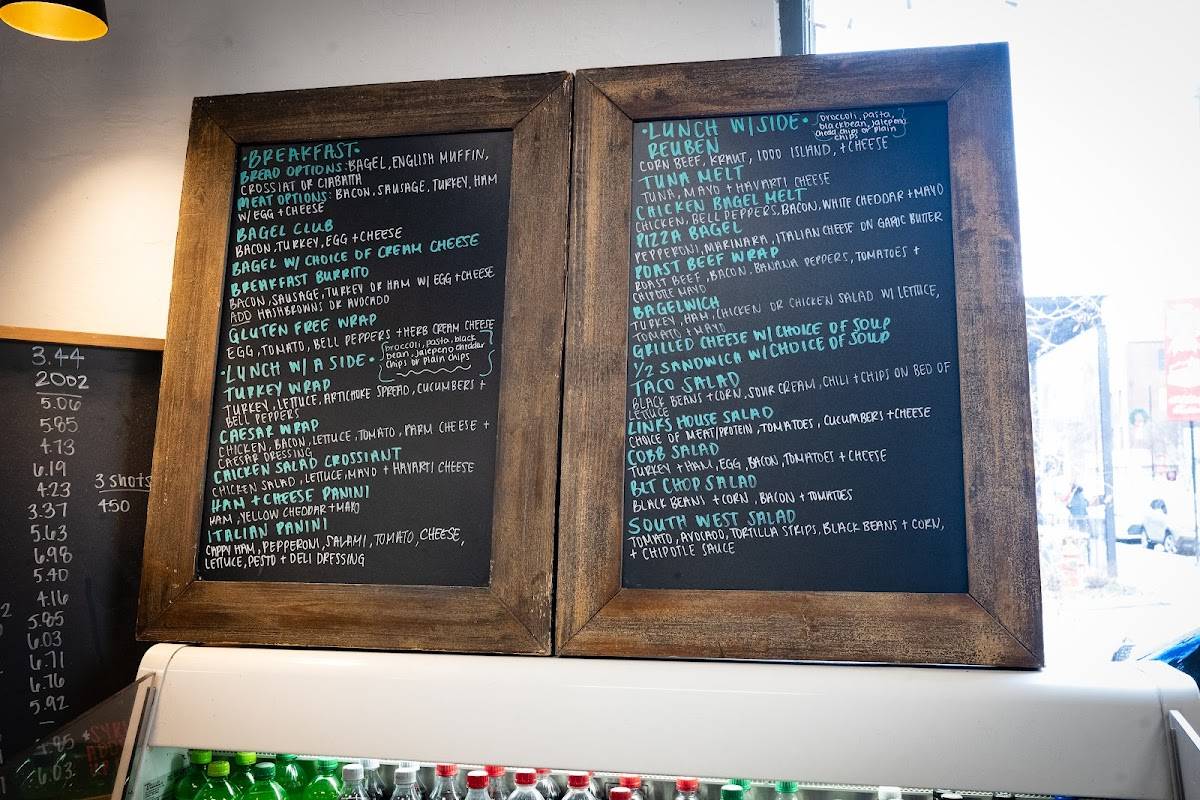 3.44
20oz
5.06
5.85
4.73
6.19
4.23
3.37
5.63
6.98
5.40
4.16
5.85
6.03
6.71
6.76
5.92
—
4.85
6.03
3 shots
450
•BREAKFAST•
BREAD OPTIONS: BAGEL, ENGLISH MUFFIN,
CROSSIAT OR CIABATTA
MEAT OPTIONS: BACON, SAUSAGE, TURKEY, HAM
W/ EGG + CHEESE
BAGEL CLUB
BACON, TURKEY, EGG + CHEESE
BAGEL W/ CHOICE OF CREAM CHEESE
BREAKFAST BURRITO
BACON, SAUSAGE, TURKEY OR HAM W/ EGG + CHEESE
ADD HASHBROWNS OR AVOCADO
GLUTEN FREE WRAP
EGG, TOMATO, BELL PEPPERS + HERB CREAM CHEESE
•LUNCH W/ A SIDE•
broccoli, pasta, black
bean, jalepeno cheddar
chips or plain chips
TURKEY WRAP
TURKEY, LETTUCE, ARTICHOKE SPREAD, CUCUMBERS +
BELL PEPPERS
CAESAR WRAP
CHICKEN, BACON, LETTUCE, TOMATO, PARM CHEESE +
CAESAR DRESSING
CHICKEN SALAD CROSSIANT
CHICKEN SALAD, LETTUCE, MAYO + HAVARTI CHEESE
HAM + CHEESE PANINI
HAM, YELLOW CHEDDAR + MAYO
ITALIAN PANINI
CAPPY HAM, PEPPERONI, SALAMI, TOMATO, CHEESE,
LETTUCE, PESTO + DELI DRESSING
•LUNCH W/SIDE•
broccoli, pasta,
blackbean, jalepeno
chedd chips or plain
chips
REUBEN
CORN BEEF, KRAUT, 1000 ISLAND, + CHEESE
TUNA MELT
TUNA, MAYO + HAVARTI CHEESE
CHICKEN BAGEL MELT
CHICKEN, BELL PEPPERS, BACON, WHITE CHEDDAR + MAYO
PIZZA BAGEL
PEPPERONI, MARINARA, ITALIAN CHEESE ON GARLIC BUTTER
ROAST BEEF WRAP
ROAST BEEF, BACON, BANANA PEPPERS, TOMATOES +
CHIPOTLE MAYO
BAGELWICH
TURKEY, HAM, CHICKEN OR CHICKEN SALAD W/ LETTUCE,
TOMATO + MAYO
GRILLED CHEESE W/ CHOICE OF SOUP
1/2 SANDWICH W/ CHOICE OF SOUP
TACO SALAD
BLACK BEANS + CORN, SOUR CREAM, CHILI + CHIPS ON BED OF
LETTUCE
LINKS HOUSE SALAD
CHOICE OF MEAT/PROTEIN, TOMATOES, CUCUMBERS + CHEESE
COBB SALAD
TURKEY + HAM, EGG, BACON, TOMATOES + CHEESE
BLT CHOP SALAD
BLACK BEANS + CORN, BACON + TOMATOES
SOUTH WEST SALAD
TOMATO, AVOCADO, TORTILLA STRIPS, BLACK BEANS + CORN,
+ CHIPOTLE SAUCE